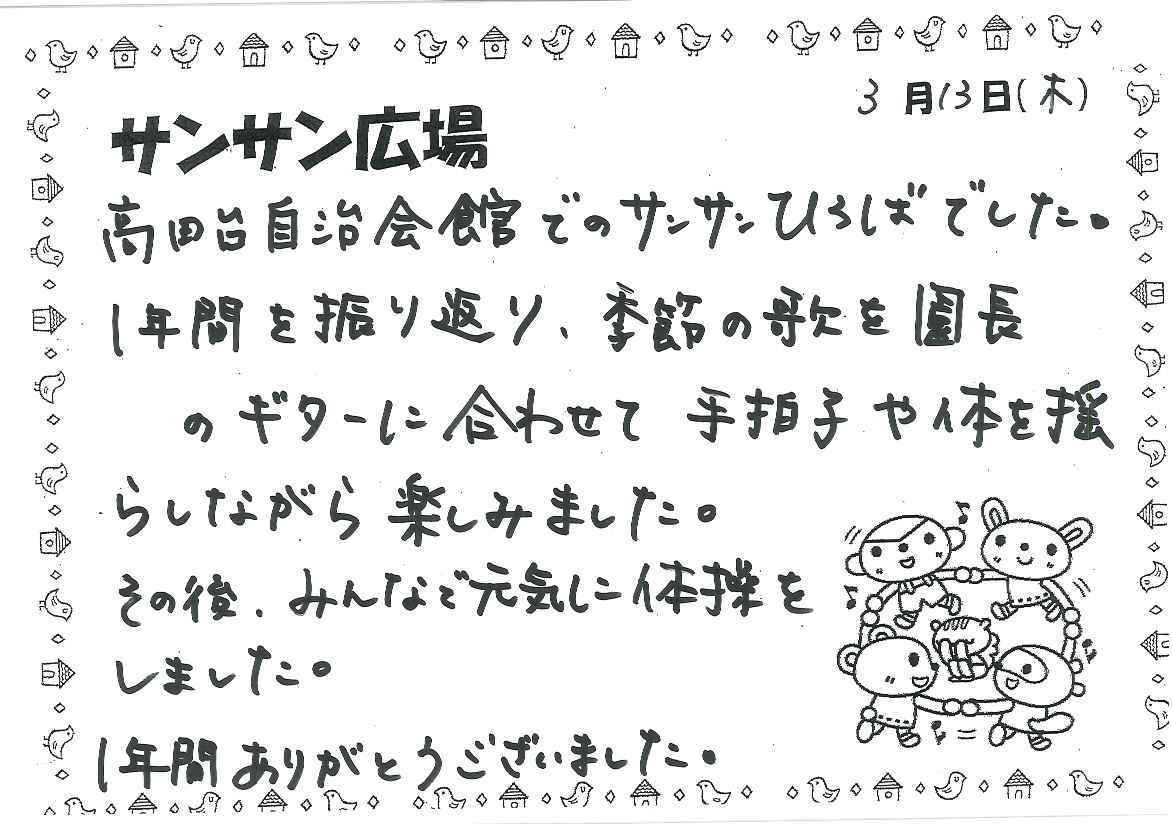 3月13日(木)
サンサン広場
高田台自治会館でのサンサンひろばでした。
1年間を振り返り、季節の歌を園長
のギターに合わせて 手拍子や体を揺
らしながら楽しみました。
その後、みんなで元気に体操を
しました。
1年間ありがとうございました。